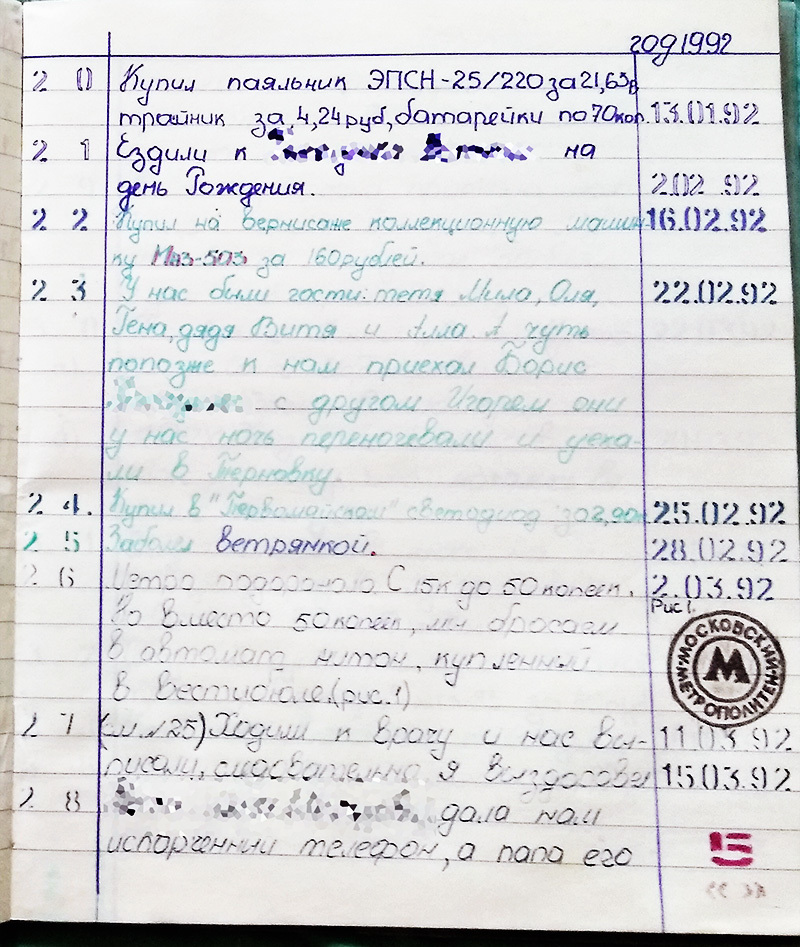 год 1992
20 Купил паяльник ЭПСН-25/220 за 21,65р,
тройник за 4,24руб, батарейки по 70коп. 13.01.92
21 Ездили к на
день Рождения. 2.02.92
22 Купил на вернисаже коллекционную машин 16.02.92
ку Маз-503 за 160 рублей.
23 У нас были гости: тетя Мила, Оля, 22.02.92
Гена, дядя Витя и Алла. А чуть
попозже к нам приехал Борис
с другом Игорем они
у нас ночь переночевали и уеха-
ли в Терновку.
24. Купил в "Первомайском" светодиод за 25.02.92
25 Заболел ветрянкой. 28.02.92
26 Метро подорожало С 15к до 50 копеек. 2.03.92
Но вместо 50 копеек, мы бросаем Рис 1.
в автомат жетон, купленный
в вестибюле.(рис.1)
МОСКОВСКИЙ МЕТРОПОЛИТЕН М
27 (м.№25) Ходили к врачу и нас вы- 11.03.92
писали, я 15.03.92
28 дала нам
испорченний телефон, а папа его
5